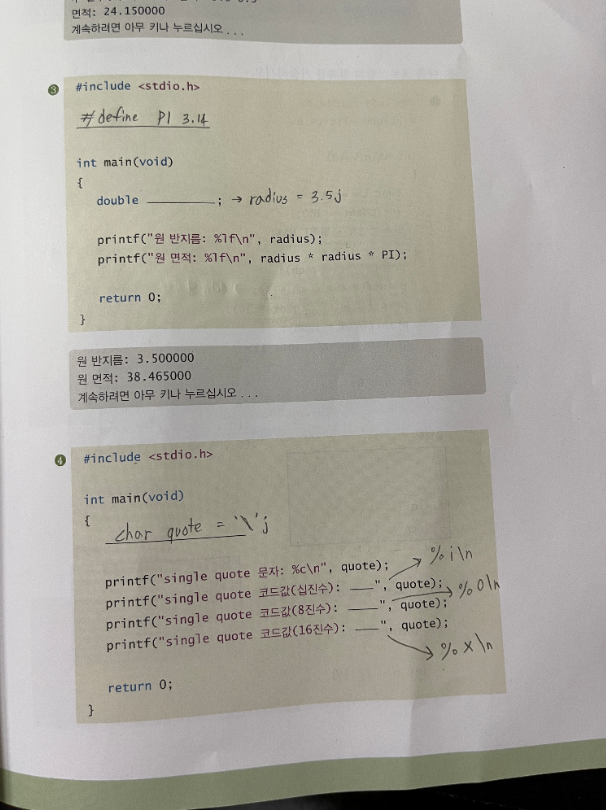 면적: 24.150000
계속하려면 아무 키나 누르십시오 ...
③ #include <stdio.h>
#define PI 3.14
int main(void)
{
double ________; → radius = 3.5;
printf("원 반지름: %lf\n", radius);
printf("원 면적: %lf\n", radius * radius * PI);
return 0;
}
원 반지름: 3.500000
원 면적: 38.465000
계속하려면 아무 키나 누르십시오 ...
④ #include <stdio.h>
int main(void)
{
char quote = '\';
printf("single quote 문자: %c\n", quote);
printf("single quote 코드값(십진수): ___", quote); → %i\n
printf("single quote 코드값(8진수): ____", quote); → %o\n
printf("single quote 코드값(16진수): ___", quote); → %x\n
return 0;
}